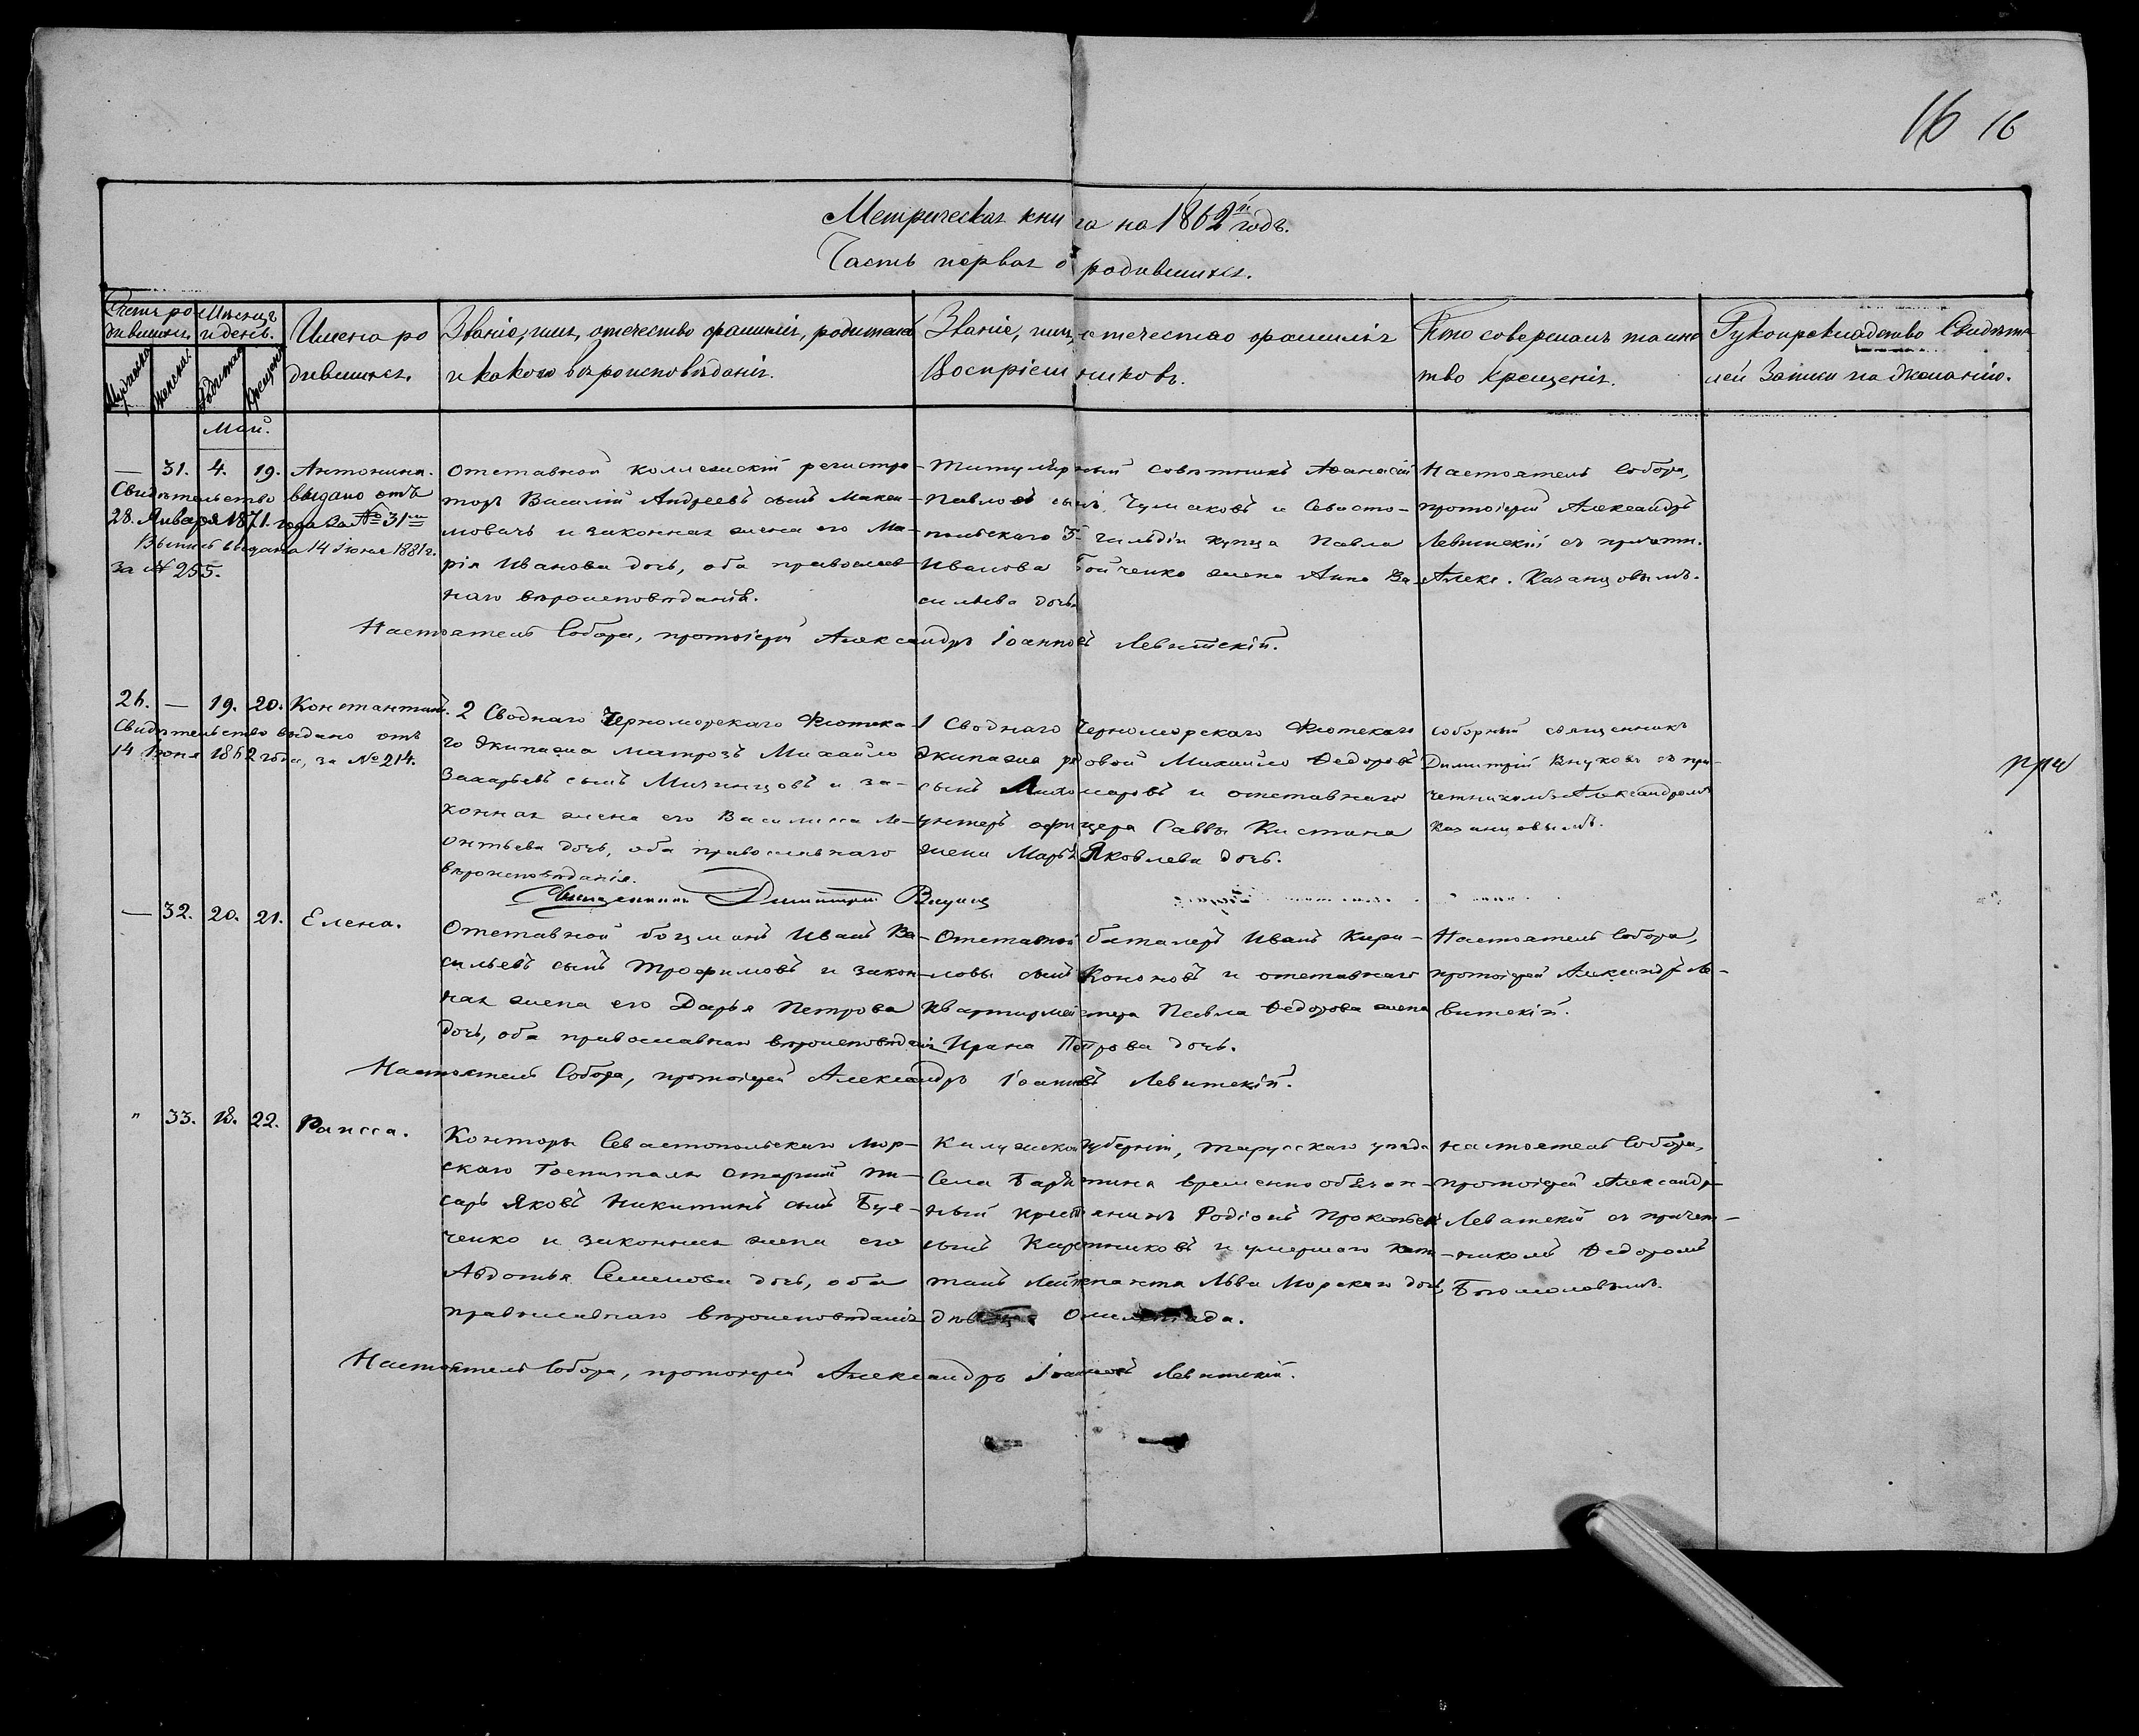 16 16
Метрическая книга на 1862й годъ.
Часть первая о родившихся.
Счетъ родившихся.
Мѣсяцъ и день.
Имена родившихся.
Званіе, имя, отечество фамилія, родителей
и какого вѣроисповѣданія.
Званіе, имя, отечество фамилія
Воспріемниковъ.
Кто совершалъ таинство
крещенія.
Рукоприкладство Свидѣтелей
Записи по желанію.
Мужеска
Женска
Рожденія
Крещенія
Май.
— 31. 4. 19. Антонина.
Свидѣтельство выдано отъ
28. Января 1871. года за № 31мъ
Выпись выдана 14 Іюня 1881 г.
за № 255.
Отставной коллежскій регистра-
торъ Василій Андреевъ сынъ Макси-
мовичъ и законная жена его Ма-
рія Иванова дочь, оба православ-
наго вѣроисповѣданія.
Титулярный совѣтникъ Аѳанасій
Павловъ сынъ Чумаковъ и Севасто-
польскаго гильдіи купца Павла
Иванова Бойченко жена Анна Ва-
сильева дочь.
Настоятель Собора,
протоіерей Александръ
Левитскій съ причетн.
Алекс. Казанцовымъ.
Настоятель Собора, протоіерей Александръ Іоанновъ Левитскій.
26. — 19. 20. Константинъ.
Свидѣтельство выдано отъ
14 Іюня 1862 года, за № 214.
2 Своднаго Черноморскаго Флотска-
го Экипажа матрозъ Михайло
Захарьевъ сынъ Мизинцовъ и за-
конная жена его Василиса Ле-
онтьева дочь, оба православнаго
вѣроисповѣданія.
1 Своднаго Черноморскаго Флотскаго
Экипажа рядовой Михайло Ѳедоровъ
сынъ и отставнаго
унтеръ офицера Саввы Кистина
жена Марья Яковлева дочь.
Соборный священникъ
Димитрій Внуковъ съ при-
четникомъ Александромъ
Казанцовымъ.
при
Священникъ Димитрій Внуковъ
— 32. 20. 21. Елена.
Отставной боцманъ Иванъ Ва-
сильевъ сынъ Трофимовъ и закон-
ная жена его Дарья Петрова
дочь, оба православнаго вѣроисповѣданія
Отставной баталеръ Иванъ Кири-
ловъ сынъ Кононовъ и отставнаго
квартирмейстера Павла Ѳедорова жена
Ирина Петрова дочь.
Настоятель Собора,
протоіерей Александръ Ле-
витскій.
Настоятель Собора, протоіерей Александръ Іоанновъ Левитскій.
" 33. 18. 22. Раисса.
Конторы Севастопольскаго Мор-
скаго Госпиталя старшій пи-
сарь Яковъ Никитинъ сынъ Буя-
ченко и законная жена его
Авдотья Семенова дочь, оба
православнаго вѣроисповѣданія
Калужской губерніи, Тарусскаго уѣзда
Села Барятина временно обязан-
ный крестьянинъ Родіонъ Прокофьевъ
сынъ Кирпичниковъ и умершаго капи-
танъ Лейтенанта Льва Морскаго дочь,
дѣвица
Настоятель Собора,
протоіерей Александръ
Левитскій съ причет-
никомъ Ѳедоромъ
Богомоловымъ.
Настоятель Собора, протоіерей Александръ Іоанновъ Левитскій.